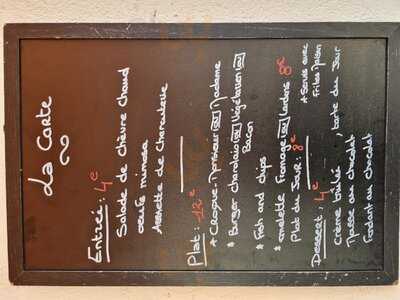 La Carte
Entrée : 4€
Salade de chèvre chaud
oeufs mimosa
Assiette de Charcuterie
Plat : 12€
* Croque-Monsieur ou Madame
* Burger charolais ou Végétarien ou
Bacon
* Fish and chips
* omelette fromage ou lardons 8€
* Servis avec
Frites Maison
Plat du Jour : 8€
Dessert : 4€
Crème brûlée , tarte du Jour
Mousse au chocolat
Fondant au chocolat